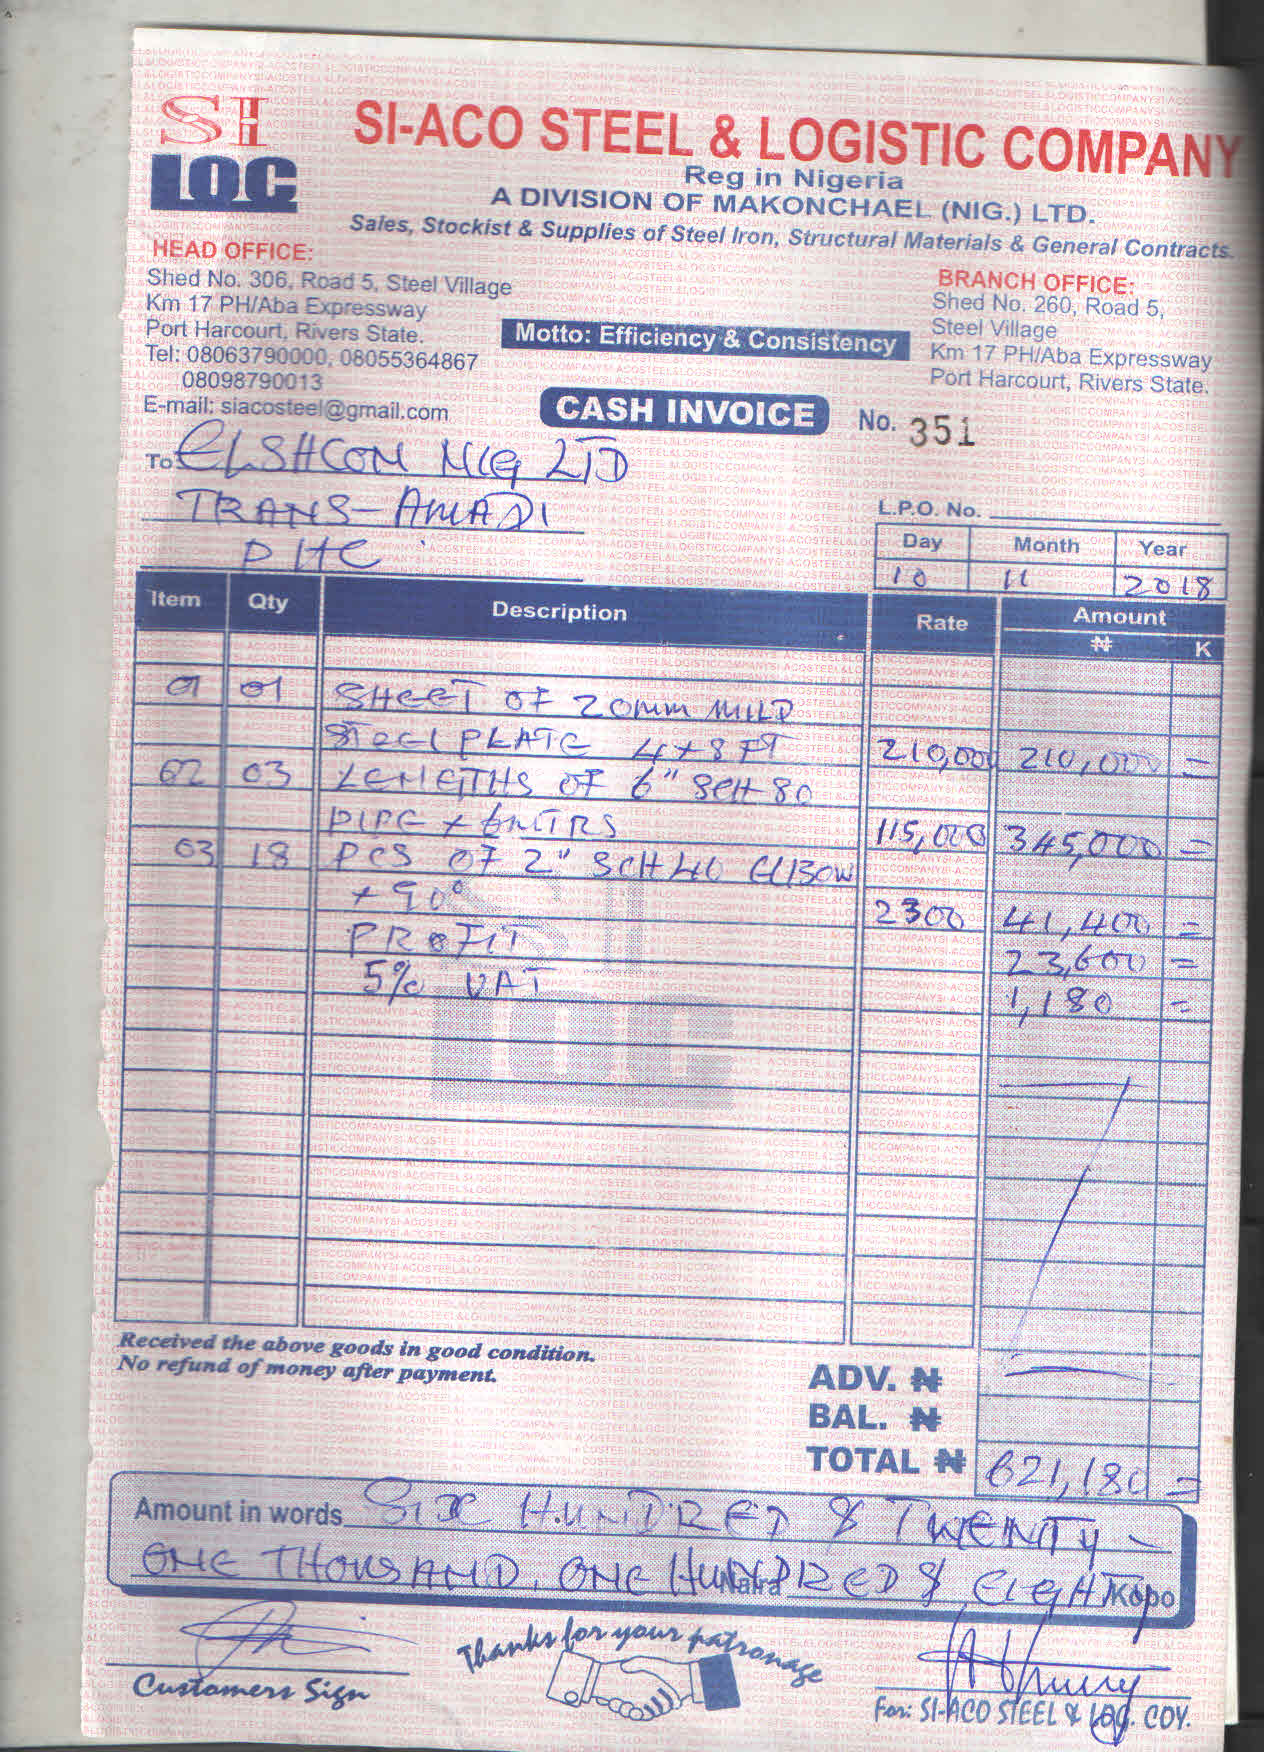 SI
LOC
SI-ACO STEEL & LOGISTIC COMPANY
Reg in Nigeria
A DIVISION OF MAKONCHAEL (NIG.) LTD.
Sales, Stockist & Supplies of Steel Iron, Structural Materials & General Contracts.
HEAD OFFICE:
Shed No. 306, Road 5, Steel Village
Km 17 PH/Aba Expressway
Port Harcourt, Rivers State.
Tel: 08063790000, 08055364867
08098790013
E-mail: siacosteel@gmail.com
BRANCH OFFICE:
Shed No. 260, Road 5,
Steel Village
Km 17 PH/Aba Expressway
Port Harcourt, Rivers State.
Motto: Efficiency & Consistency
CASH INVOICE No. 351
To ELSHCON NIG LTD
TRANS-AMADI
PHC
L.P.O. No.
Day Month Year
10 11 2018
Item Qty Description Rate Amount
₦ K
01 01 SHEET OF 20mm MILD
STEEL PLATE 4x8FT 210,000 210,000 =
02 03 LENGTHS OF 6" SCH 80
PIPE x 6MTRS 115,000 345,000 =
03 18 PCS OF 2" SCH 40 ELBOW
x 90° 2300 41,400 =
PROFIT 23,600 =
5% VAT 1,180 =
Received the above goods in good condition.
No refund of money after payment.
ADV. ₦
BAL. ₦
TOTAL ₦ 621,180 =
Amount in words SIX HUNDRED & TWENTY-
ONE THOUSAND, ONE HUNDRED & EIGHTY
Naira Kobo
Customers Sign
Thanks for your patronage
For: SI-ACO STEEL & LOG. COY.